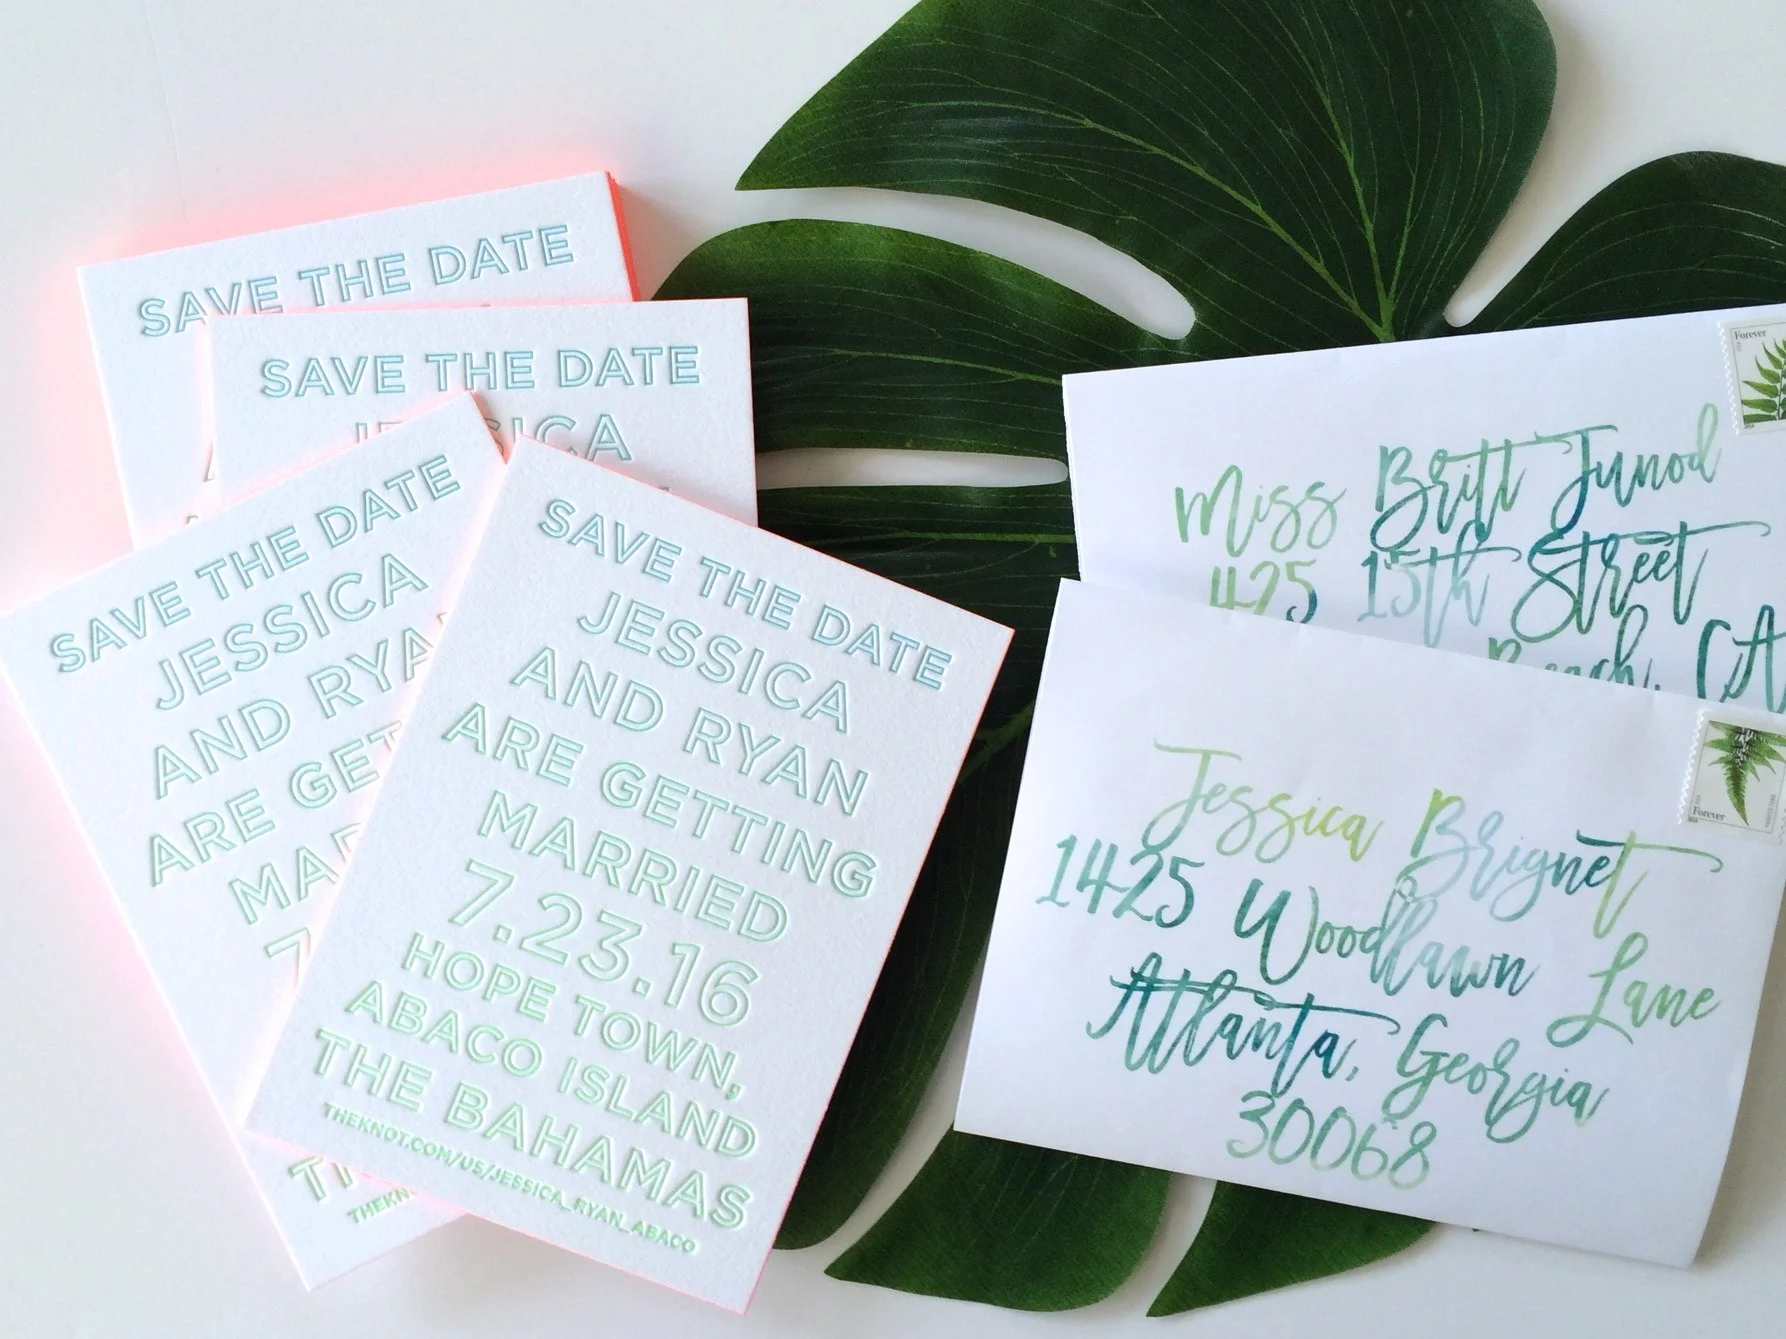 SAVE THE DATE
SAVE THE DATE
JESSICA
SAVE THE DATE
JESSICA
AND RYA
ARE GET
MA
7
THEKN
SAVE THE DATE
JESSICA
AND RYAN
ARE GETTING
MARRIED
7.23.16
HOPE TOWN,
ABACO ISLAND
THE BAHAMAS
THEKNOT.COM/US/JESSICA_RYAN_ABACO
Forever
Miss Britt Junod
425 15th Street
Beach, CA
Forever
Jessica Brignet
1425 Woodlawn Lane
Atlanta, Georgia
30068